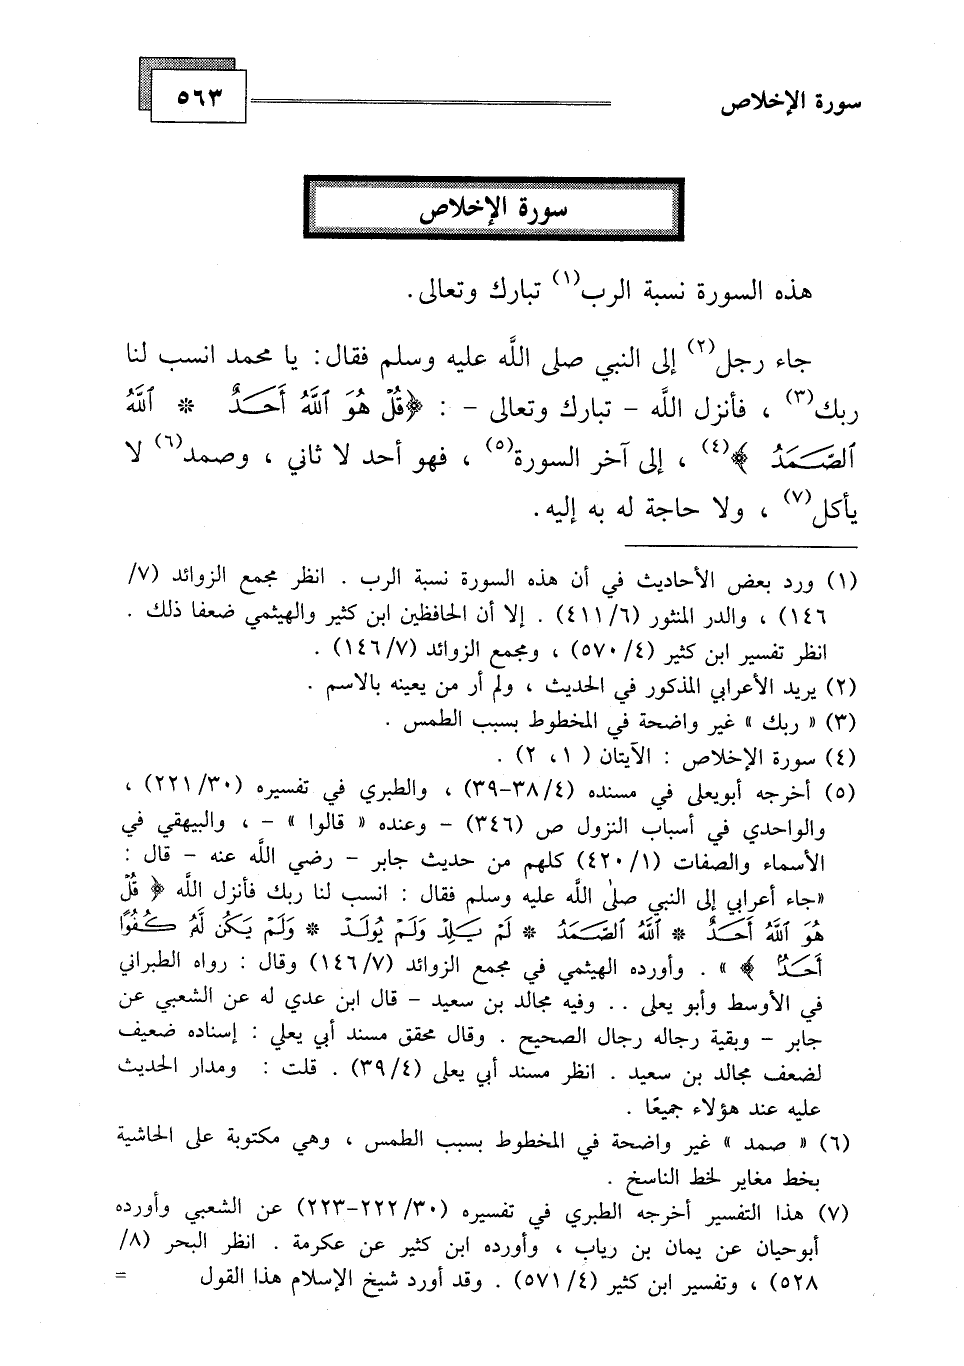 سورة الإخلاص
٥٦٣
سورة الإخلاص
هذه السورة نسبة الرب(١) تبارك وتعالى.
جاء رجل(٢) إلى النبي صلى اللَّه عليه وسلم فقال: يا محمد انسب لنا
ربك(٣) ، فأنزل اللَّه - تبارك وتعالى - : ﴿قُلْ هُوَ ٱللَّهُ أَحَدٌ * ٱللَّهُ
ٱلصَّمَدُ ﴾(٤) ، إلى آخر السورة(٥) ، فهو أحد لا ثاني ، وصمد(٦) لا
يأكل(٧) ، ولا حاجة له به إليه.
(١) ورد بعض الأحاديث في أن هذه السورة نسبة الرب . انظر مجمع الزوائد (٧/
١٤٦) ، والدر المنثور (٤١١/٦) . إلا أن الحافظين ابن كثير والهيثمي ضعفا ذلك .
انظر تفسير ابن كثير (٥٧٠/٤) ، ومجمع الزوائد (١٤٦/٧) .
(٢) يريد الأعرابي المذكور في الحديث ، ولم أر من يعينه بالاسم .
(٣) « ربك » غير واضحة في المخطوط بسبب الطمس .
(٤) سورة الإخلاص : الآيتان ( ١، ٢) .
(٥) أخرجه أبويعلى في مسنده (٣٨/٤-٣٩) ، والطبري في تفسيره (٢٢١/٣٠) ،
والواحدي في أسباب النزول ص (٣٤٦) - وعنده « قالوا » - ، والبيهقي في
الأسماء والصفات (٤٢٠/١) كلهم من حديث جابر - رضي اللَّه عنه - قال :
«جاء أعرابي إلى النبي صلى اللَّه عليه وسلم فقال : انسب لنا ربك فأنزل اللَّه ﴿ قُلْ
هُوَ ٱللَّهُ أَحَدٌ * ٱللَّهُ ٱلصَّمَدُ * لَمْ يَلِدْ وَلَمْ يُولَدْ * وَلَمْ يَكُن لَّهُ كُفُوًا
أَحَدٌ ﴾ » . وأورده الهيثمي في مجمع الزوائد (١٤٦/٧) وقال : رواه الطبراني
في الأوسط وأبو يعلى .. وفيه مجالد بن سعيد - قال ابن عدي له عن الشعبي عن
جابر - وبقية رجاله رجال الصحيح . وقال محقق مسند أبي يعلي : إسناده ضعيف
لضعف مجالد بن سعيد . انظر مسند أبي يعلى (٣٩/٤) . قلت : ومدار الحديث
عليه عند هؤلاء جميعًا .
(٦) « صمد » غير واضحة في المخطوط بسبب الطمس ، وهي مكتوبة على الحاشية
بخط مغاير لخط الناسخ .
(٧) هذا التفسير أخرجه الطبري في تفسيره (٢٢٢/٣٠-٢٢٣) عن الشعبي وأورده
أبوحيان عن يمان بن رياب ، وأورده ابن كثير عن عكرمة . انظر البحر (٨/
٥٢٨) ، وتفسير ابن كثير (٥٧١/٤) . وقد أورد شيخ الإسلام هذا القول =